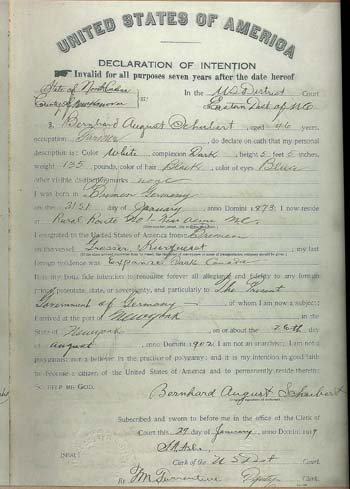 UNITED STATES OF AMERICA
DECLARATION OF INTENTION
Invalid for all purposes seven years after the date hereof
State of North Carolina
In the U S District Court
County of New Hanover ss:
Eastern Dist of N C
I, Bernhard August Schubert, aged 46 years,
occupation Farmer, do declare on oath that my personal
description is: Color White, complexion Dark, height 5 feet 5 inches,
weight 135 pounds, color of hair Black, color of eyes Blue
other visible distinctive marks none
I was born in Bremen Germany
on the 31st day of January, anno Domini 1873; I now reside
at Rural Route No 1 N.C.
I emigrated to the United States of America from Bremen
on the vessel Grosser Kurfuerst, my last
foreign residence was
It is my bona fide intention to renounce forever all allegiance and fidelity to any foreign
prince, potentate, state, or sovereignty, and particularly to The Present
Government of Germany, of whom I am now a subject;
I arrived at the port of Newyork, in the
State of Newyork, on or about the day
of august, anno Domini 190; I am not an anarchist; I am not a
polygamist nor a believer in the practice of polygamy; and it is my intention in good faith
to become a citizen of the United States of America and to permanently reside therein:
SO HELP ME GOD.
Bernhard August Schubert
Subscribed and sworn to before me in the office of the Clerk of
Court this 29 day of January, anno Domini 1919
[SEAL]
Clerk of the U S Dist Court.
By Deputy Clerk.